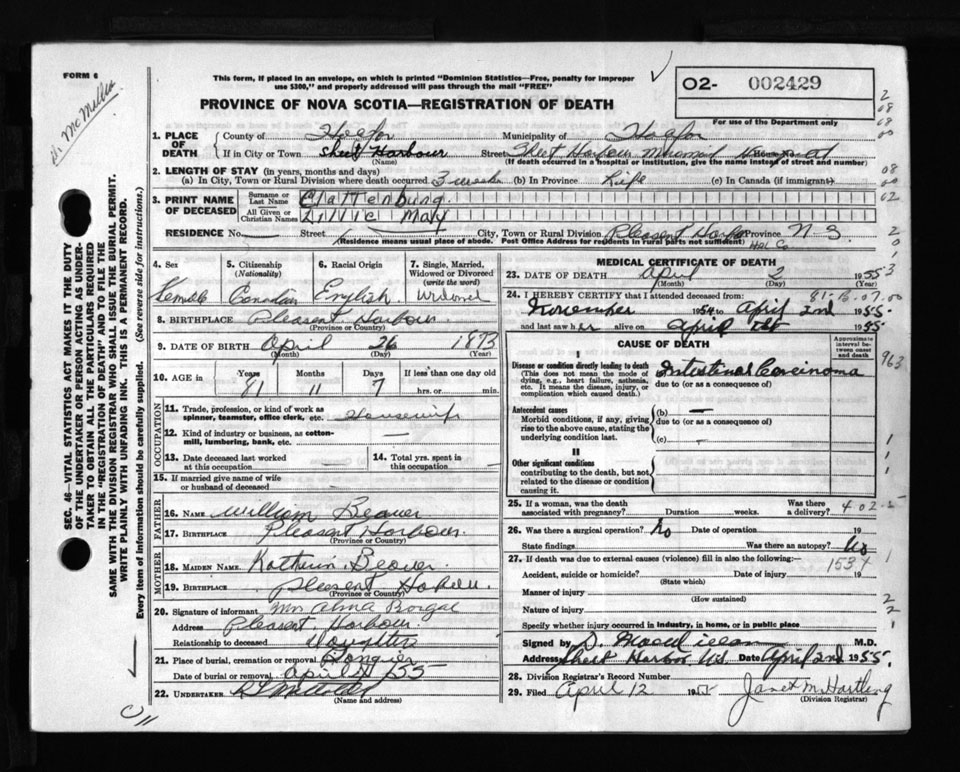 FORM 6
This form, if placed in an envelope, on which is printed "Dominion Statistics—Free, penalty for improper
use $300," and properly addressed will pass through the mail "FREE"
PROVINCE OF NOVA SCOTIA—REGISTRATION OF DEATH
02- 002429
For use of the Department only
Dr. McMillen
SEC. 46—VITAL STATISTICS ACT MAKES IT THE DUTY
OF THE UNDERTAKER OR PERSON ACTING AS UNDERTAKER
TO OBTAIN ALL THE PARTICULARS REQUIRED
IN THE "REGISTRATION OF DEATH" AND TO FILE THE
SAME WITH THE DIVISION REGISTRAR WHO SHALL ISSUE THE BURIAL PERMIT.
WRITE PLAINLY WITH UNFADING INK. THIS IS A PERMANENT RECORD.
Every item of information should be carefully supplied. (See reverse side for instructions.)
1. PLACE OF DEATH
County of Halifax Municipality of Halifax
If in City or Town Sheet Harbour (Name) Street Sheet Harbour Memorial Hospital House No.
(If death occurred in a hospital or institution, give the name instead of street and number)
2. LENGTH OF STAY (in years, months and days)
(a) In City, Town or Rural Division where death occurred 3 weeks (b) In Province Life (c) In Canada (if immigrant)
3. PRINT NAME OF DECEASED
Surname or Last Name Clattenburg
All Given or Christian Names Lillie Mary
RESIDENCE No. Street City, Town or Rural Division Pleasent Harbor Province N.S.
(Residence means usual place of abode. Post Office Address for residents in rural parts not sufficient) Hal Co
4. Sex Female
5. Citizenship (Nationality) Canadian
6. Racial Origin English
7. Single, Married, Widowed or Divorced (write the word) Widowed
8. BIRTHPLACE Pleasent Harbour
(Province or Country)
9. DATE OF BIRTH April 26 1873
(Month) (Day) (Year)
10. AGE in Years 81 Months 11 Days 7 If less than one day hrs. or min.
OCCUPATION
11. Trade, profession, or kind of work as spinner, teamster, office clerk, etc. Housewife
12. Kind of industry or business, as cotton-mill, lumbering, bank, etc. —
13. Date deceased last worked at this occupation —
14. Total yrs. spent in this occupation —
15. If married give name of wife or husband of deceased
FATHER
16. NAME William Beaver
17. BIRTHPLACE Pleasent Harbour
(Province or Country)
MOTHER
18. MAIDEN NAME Beaver
19. BIRTHPLACE Pleasent Harbour
(Province or Country)
20. Signature of informant Mrs Alma
Address Pleasent Harbour
Relationship to deceased Daughter
21. Place of burial, cremation or removal Tangier
Date of burial or removal April 4 / 55
22. UNDERTAKER
(Name and address)
MEDICAL CERTIFICATE OF DEATH
23. DATE OF DEATH April 2 1955
(Month) (Day) (Year)
24. I HEREBY CERTIFY that I attended deceased from: 81-6-07.00
November 1954 to April 2nd 1955
and last saw her alive on April 1st 1955
CAUSE OF DEATH
Approximate interval between onset and death
I
Disease or condition directly leading to death
(This does not mean the mode of dying, e.g., heart failure, asthenia, etc. It means the disease, injury, or complication which caused death.)
(a) Intestinal Carcinoma
due to (or as a consequence of)
Antecedent causes
Morbid conditions, if any, giving rise to the above cause, stating the underlying condition last.
(b) —
due to (or as a consequence of)
(c) —
II
Other significant conditions
contributing to the death, but not related to the disease or condition causing it.
25. If a woman, was the death associated with pregnancy? Duration weeks. Was there a delivery?
26. Was there a surgical operation? No Date of operation 19
State findings Was there an autopsy? No
27. If death was due to external causes (violence) fill in also the following:— 1534
Accident, suicide or homicide? (State which) Date of injury 19
Manner of injury
(How sustained)
Nature of injury
Specify whether injury occurred in industry, in home, or in public place
Signed by D. M.D.
Address Sheet Harbor N.S. Date April 2nd 1955.
28. Division Registrar's Record Number
29. Filed April 12 1955 Janet M Hartling
(Division Registrar)
963